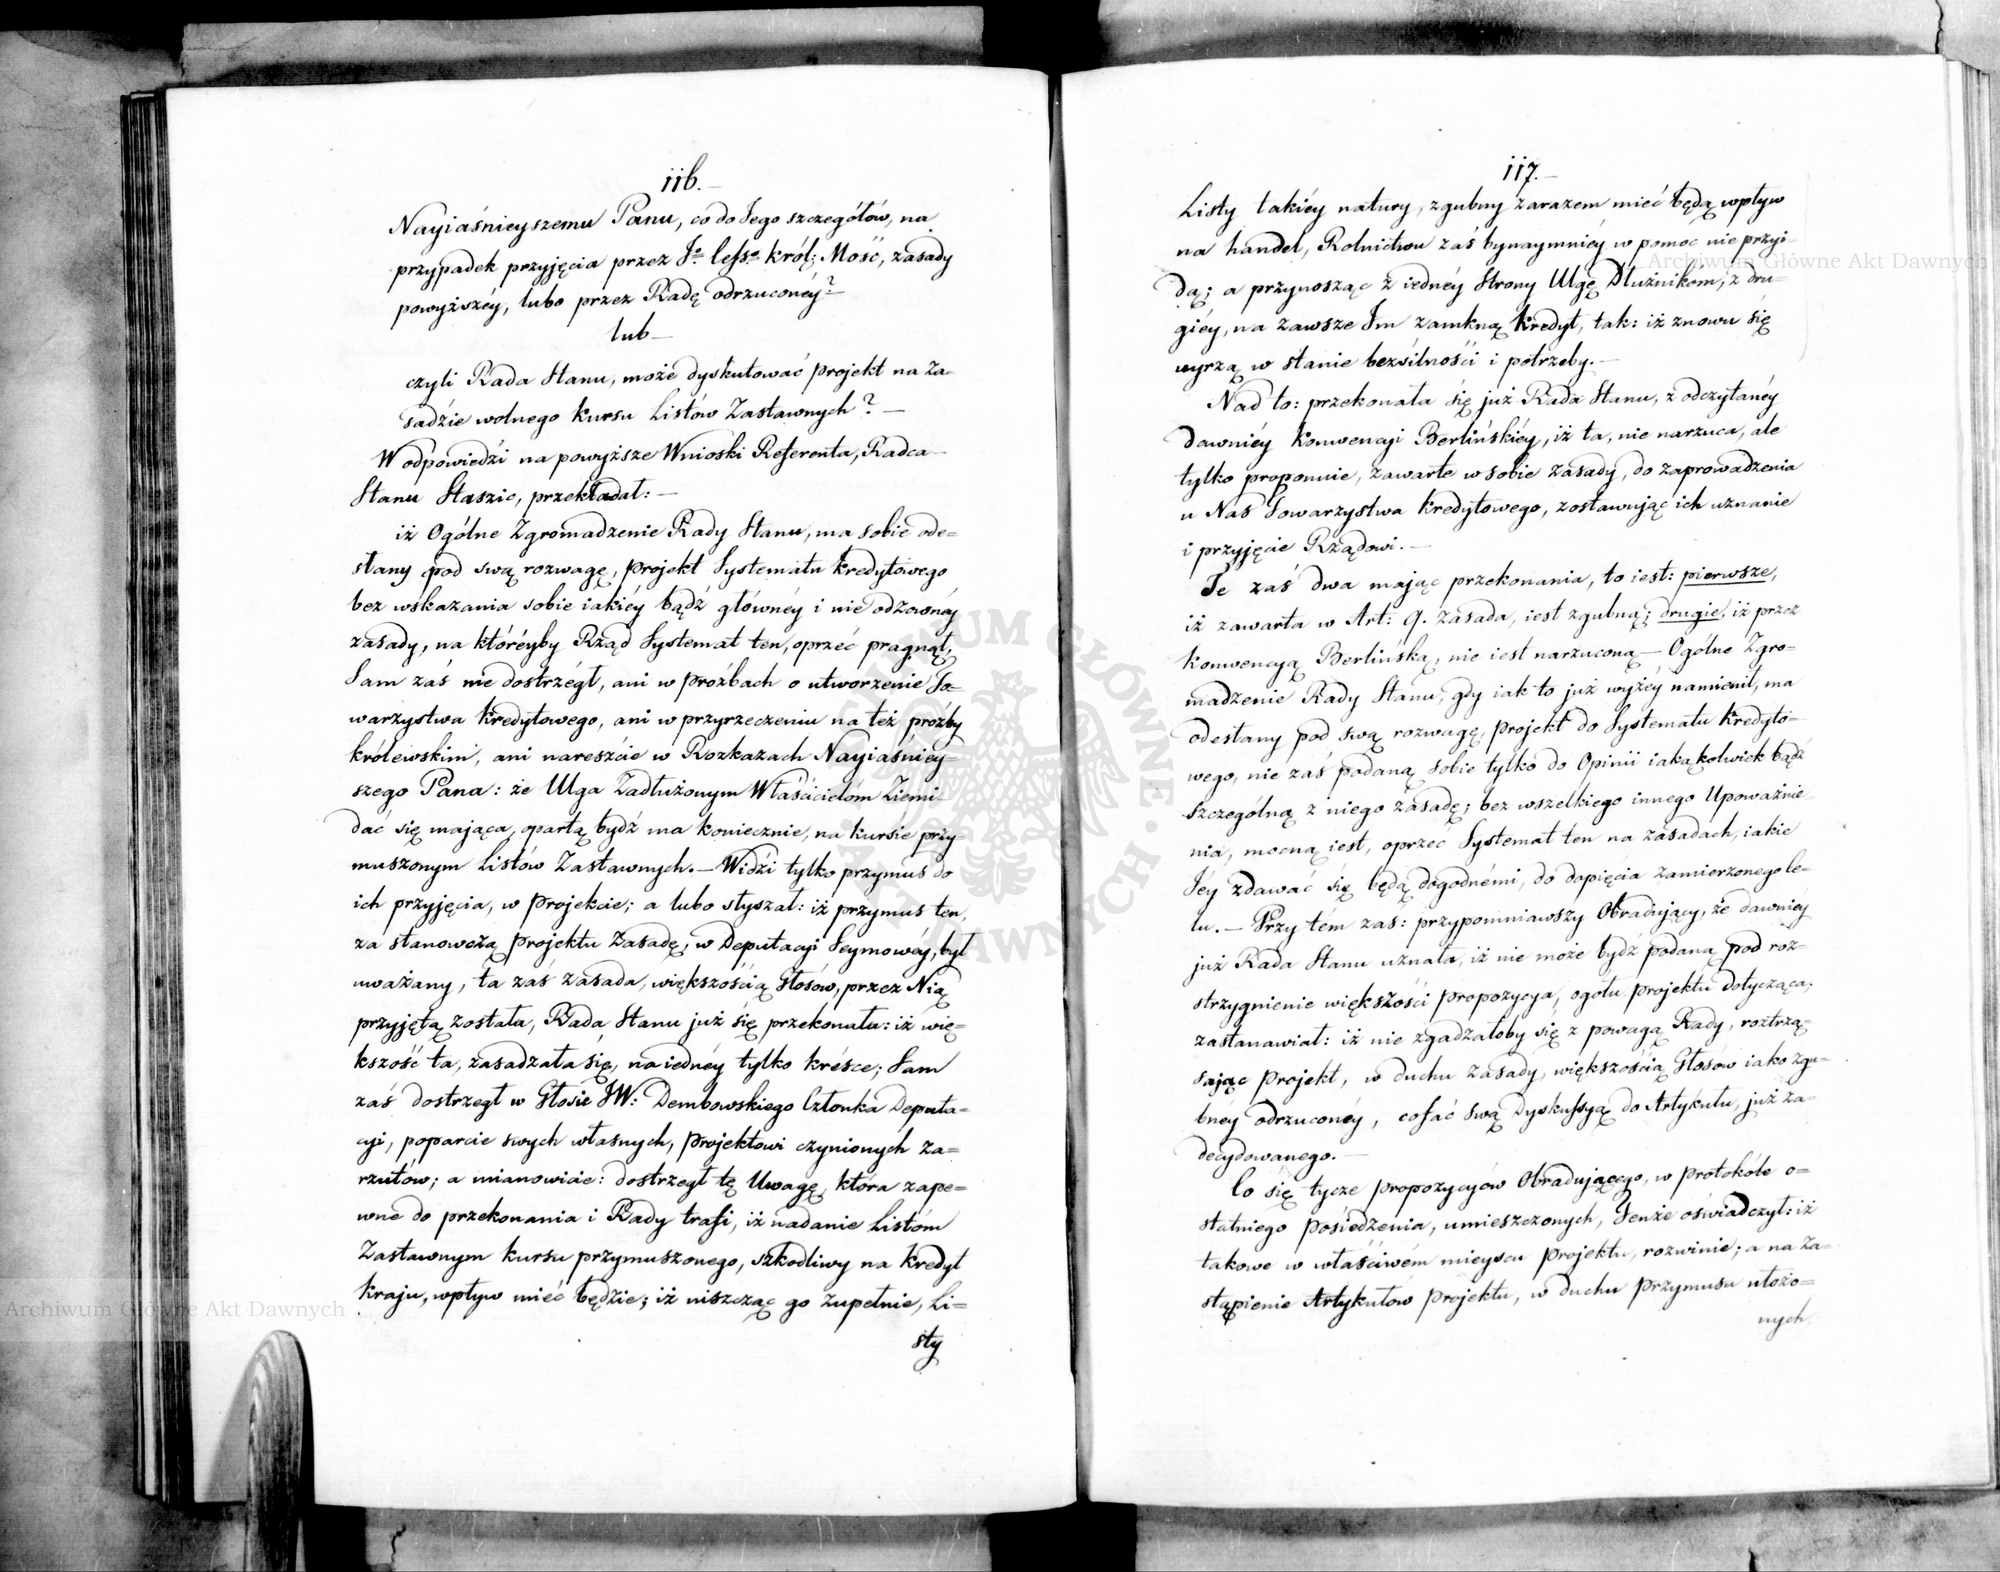 116.
Nayiaśnieyszemu Panu, co do Jego szczegółów, na
przypadek przyjęcia przez Jo Cessa król: Mość, zasady
powyższey, lubo przez Radę odrzuconéy?
lub
czyli Rada Stanu, może dyskutować projekt na za-
sadzie wolnego kursu Listów Zastawnych? —
W odpowiedzi na powyższe Wnioski Referenta, Radca
Stanu Staszic, przekładał: —
iż Ogólne Zgromadzenie Rady Stanu, ma sobie ode=
słany pod swą rozwagę, projekt Systematu kredytowego
bez wskazania sobie iakiéy bądź głównéy i nie odzownéy
zasady, na któréyby Rząd Systemat ten, oprzeć pragnął,
Sam zaś nie dostrzégł, ani w proźbach o utworzenie To=
warzystwa kredytowego, ani w przyrzeczeniu na też proźby
królewskim, ani nareszcie w Rozkazach Nayiaśniey=
szego Pana: że Ulga Zadłużonym Właścicielóm Ziemi
dać się maiąca, opartą bydź ma koniecznie, na kursie przy
muszonym Listów Zastawnych. — Widzi tylko przymus do
ich przyjęcia, w projekcie; a lubo słyszał: iż przymus ten,
za stanowczą projektu Zasadę, w Deputacyi Seymowéy, był
uważany, ta zaś zasada, większością Głosów, przez Nią
przyjętą została, Rada Stanu już się przekonała: iż wię=
kszość ta, zasadzała się, na iednéy tylko krésce; Sam
zaś dostrzegł w Głosie JW: Dembowskiego Członka Deputa=
cyi, poparcie swych własnych, projektowi czynionych za=
rzutów; a mianowicie: dostrzegł tę Uwagę, która zape=
wne do przekonania i Rady trafi, iż nadanie Listóm
Zastawnym kursu przymuszonego, szkodliwy na kredyt
kraju, wpływ mieć będzie; iż niszcząc go zupełnie, Li=
sty
117.
Listy takiéy natury, zgubny zarazem mieć będą wpływ
na handel, Rolnictwu zaś bynaymniéy w pomoc nie przyi=
dą; a przynosząc z iednéy Strony Ulgę Dłużnikóm, z dru=
giéy, na zawsze Im zamkną kredyt, tak: iż znowu się
uyrzą w stanie bezsilności i potrzeby. —
Nad to: przekonała się już Rada Stanu, z odczytanéy
dawniéy Konwencyi Berlińskiéy, iż ta, nie narzuca, ale
tylko proponuie, zawarte w sobie zasady, do zaprowadzenia
u Nas Towarzystwa kredytowego, zostawując ich uznanie
i przyjęcie Rządowi. —
Te zaś dwa mając przekonania, to iest: pierwsze,
iż zawarta w Art: 9. zasada, iest zgubną; drugie, iż przez
Konwencyą Berlińską, nie iest narzuconą — Ogólne Zgro=
madzenie Rady Stanu, gdy iak to już wyżéy namienił, ma
odesłany pod swą rozwagę, projekt do Systematu kredyto=
wego, nie zaś podaną sobie tylko do Opinii iakąkolwiek bądź
szczególną z niego zasadę; bez wszelkiego innego Upoważnie
nia, mocną iest, oprzeć Systemat ten na zasadach, iakie
Jéy zdawać się będą dogodnémi, do dopięcia zamierzonego Ce=
lu. — Przy tém zaś: przypomniawszy Obradujący, że dawniéy
już Rada Stanu uznała, iż nie może bydź podaną pod roz=
strzygnienie większości propozycya, ogółu projektu dotycząca;
zastanawiał: iż nie zgadzałoby się z powagą Rady, roztrzą=
sając projekt, w duchu zasady, większością Głosów iako zgu=
bnéy odrzuconéy, cofać swą Dyskussyą do Artykułu, już za=
decydowanego. —
Co się tycze propozycyów Obradującego, w protokóle o=
statniego posiedzenia, umieszczonych, Tenże oświadczył: iż
takowe w właściwém mieyscu projektu, rozwinie; a na za=
stąpienie Artykułów projektu, w duchu przymusu ułożo=
nych
Archiwum Główne Akt Dawnych
Archiwum Główne Akt Dawnych
ARCHIWUM GŁÓWNE AKT DAWNYCH